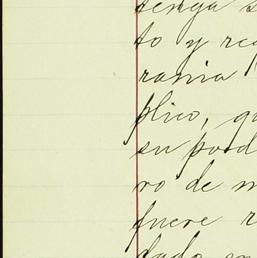 tenga s
to y rec
rania
plico, qu
su pod
ro de m
fuere r
dado en